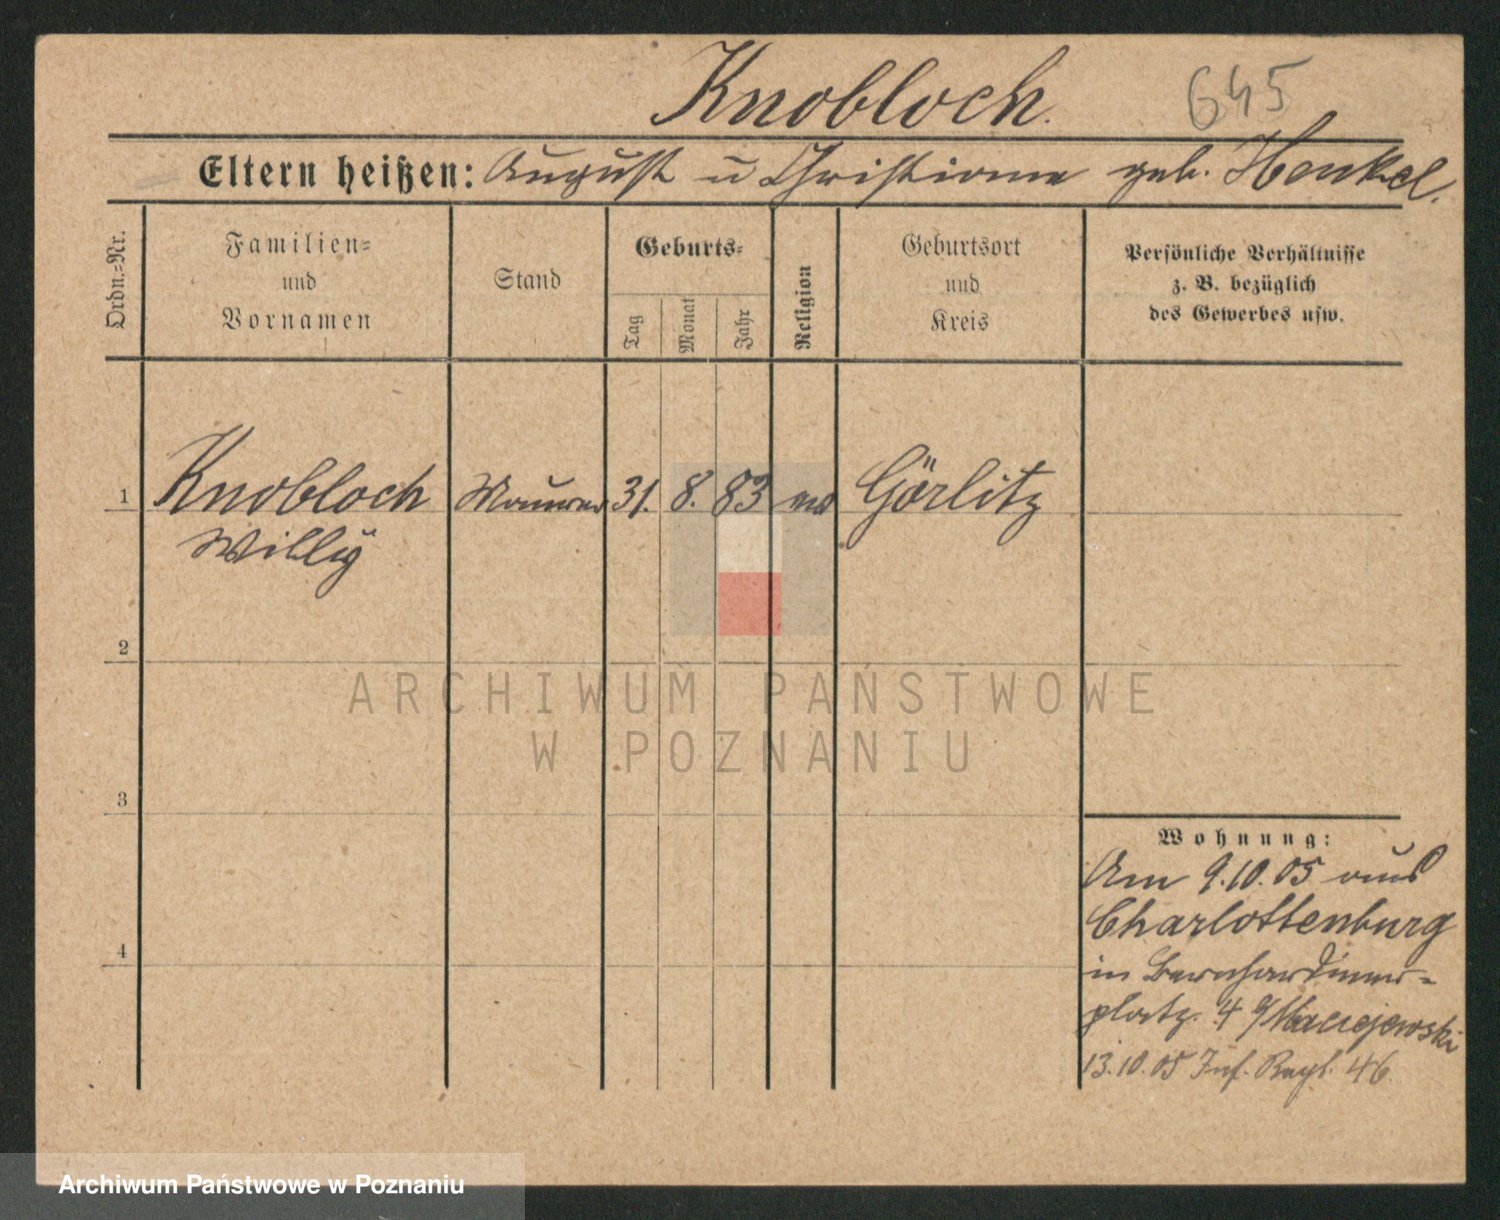 Knobloch.
645
Eltern heißen: August u Christiane geb. Henkel.
Ordn.=Nr.
Familien=
und
Vornamen
Stand
Geburts=
Tag
Monat
Jahr
Religion
Geburtsort
und
Kreis
Persönliche Verhältnisse
z. B. bezüglich
des Gewerbes usw.
1 Knobloch Maurer 31. 8. 83 Görlitz
Willy
2
ARCHIWUM PAŃSTWOWE
W POZNANIU
3
Wohnung:
Am 9.10.05 aus
Charlottenburg
4
in Bernhardiner=
platz. 4 Maciejewski
13.10.05 Inf. Regt. 46
Archiwum Państwowe w Poznaniu